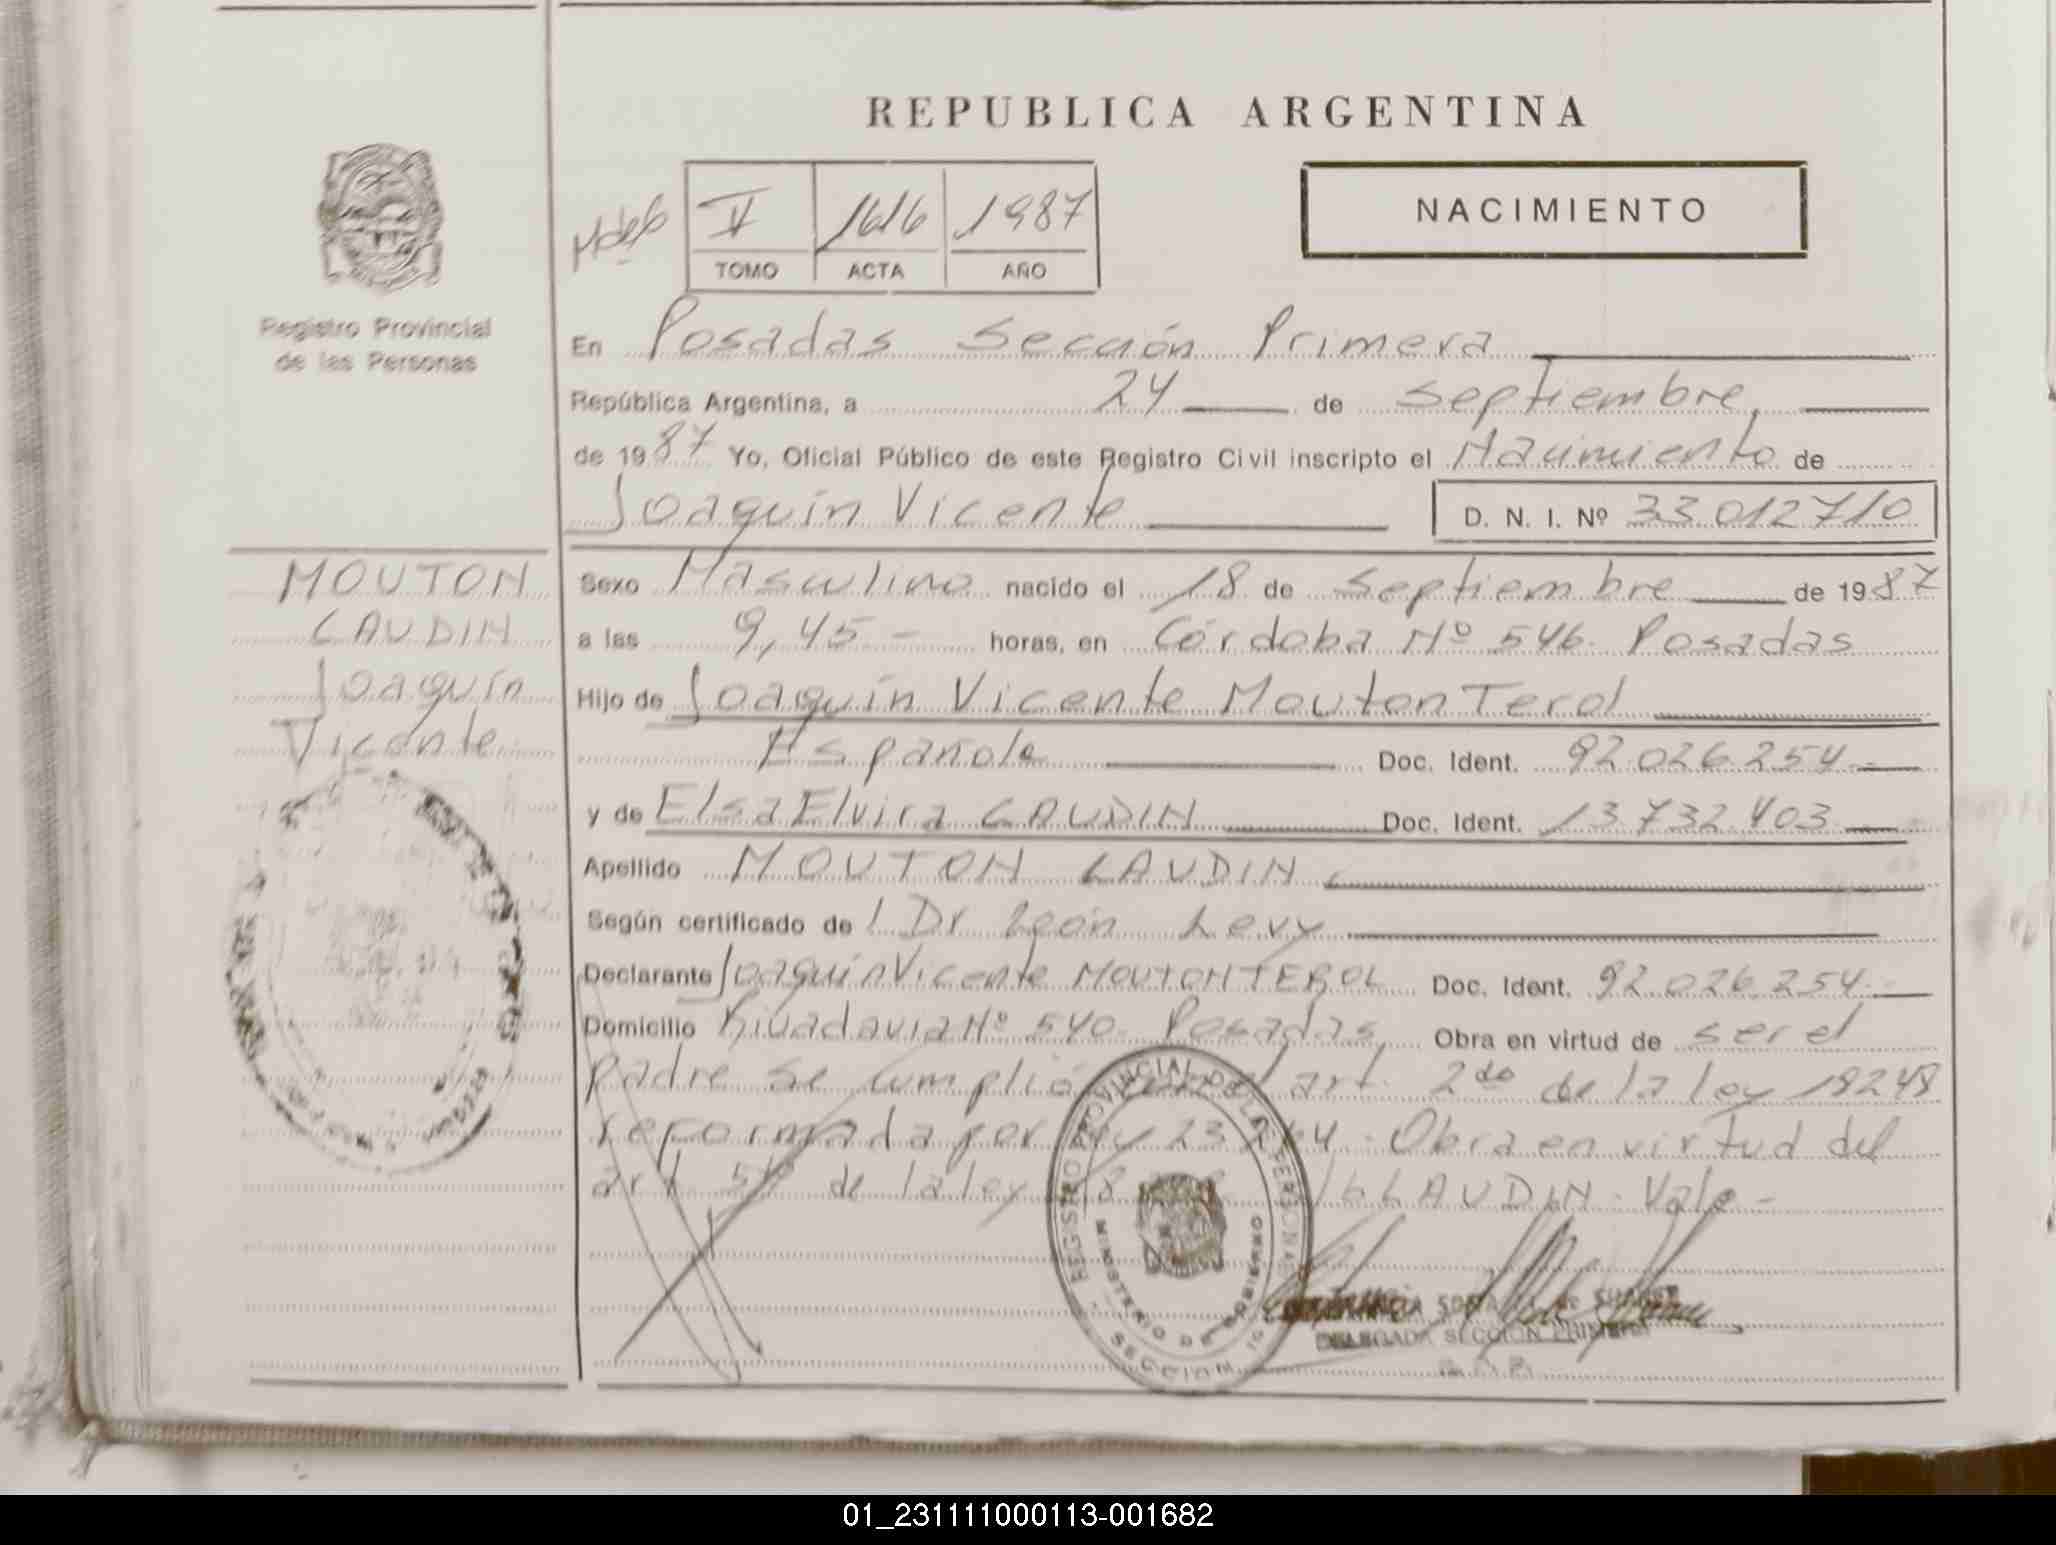 REPUBLICA ARGENTINA
V 1616 1987
TOMO ACTA AÑO
NACIMIENTO
Registro Provincial
de las Personas
En Posadas Sección Primera
República Argentina, a 24 de Septiembre
de 1987 Yo, Oficial Público de este Registro Civil inscripto el Nacimiento de
Joaquín Vicente D. N. I. Nº 33.012710
MOUTON
CAUDIN
Joaquín
Vicente
Sexo Masculino nacido el 18 de Septiembre de 1987
a las 9,45 - horas, en Córdoba Nº 546. Posadas
Hijo de Joaquín Vicente Mouton Terol
Española Doc. Ident. 92.026.254
y de Elsa Elvira CAUDIN Doc. Ident. 13.732.403
Apellido MOUTON CAUDIN
Según certificado de l Dr León Levy
Declarante Joaquín Vicente MOUTON TEROL Doc. Ident. 92.026.254.
Domicilio Rivadavia Nº 540. Posadas, Obra en virtud de ser el
padre se cumplió art. 2do de la ley 18248
reformada por 23 Obra en virtud del
art de la ley CAUDIN. Vale -
REGISTRO PROVINCIAL DE LAS PERSONAS
MINISTERIO DE GOBIERNO
SECCION 1º
DELEGADA SECCION PRIMERA
01_231111000113-001682